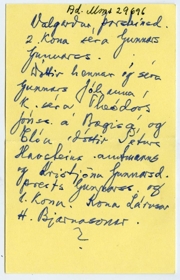 Bd. Mms 29696
Valgerður, prestsined.
2. Kona séra Gunnars
Gunnars.
dóttir hennar og séra
Gunnars Jóhanna
K. séra Theodórs
Jóns. á Bægisá og
dóttir Péturs
Havsteins amtmanns
og Kristjönu Gunnarsd.
prests Gunnars. og
1. Konu. Kona Lárusar
H. Bjarnasonar
?